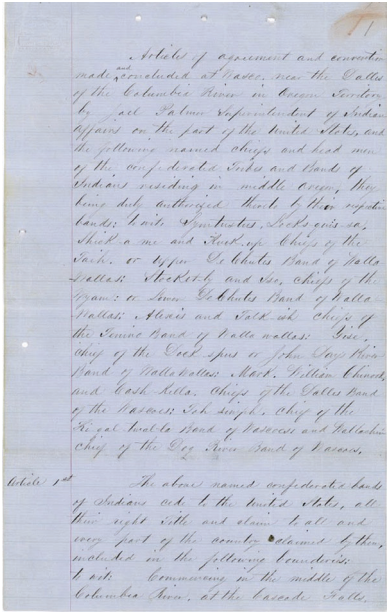 Articles of agreement and convention
made and concluded at Wasco, near the Dalles
of the Columbia River in Oregon Territory
by Joel Palmer Superintendent of Indian
affairs on the part of the United States, and
the following named chiefs and head men
of the confederated Tribes and Bands of
Indians residing in middle Oregon, they
being duly authorized thereto by their respective
bands: to wit: Symtustus, Locks quis sa,
Shick a me and Kuck up Chiefs of the
Taih or Upper De Chutes Band of Walla
Wallas: Stocket-ly and Iso, chiefs of the
Wyam: or Lower De Chutes Band of Walla
Wallas: Alexis and Talk ish chiefs of
the Tenino Band of Walla wallas: Yise
chief of the Dock spus or John Days River
Band of Walla Wallas: Mark, William Chinook,
and Cash Kella, Chiefs of the Dalles Band
of the Wascoes: Toh simph, chief of the
Ki gal twal la Band of Wascoes and Wallachin
chief of the Dog River Band of Wascoes.
Article 1st The above named confederated bands
of Indians cede to the United States, all
their right Title and claim to all and
every part of the country claimed by them,
included in the following boundaries:
to wit: Commencing in the middle of the
Columbia River, at the Cascade Falls,